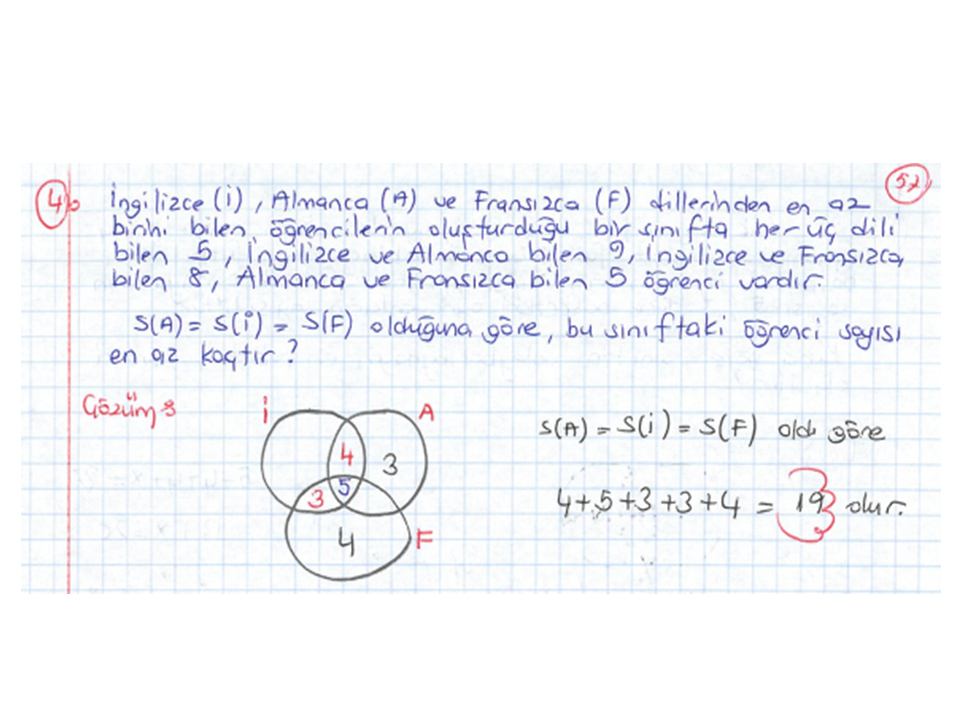 4) İngilizce (İ), Almanca (A) ve Fransızca (F) dillerinden en az 52
birini bilen öğrencilerin oluşturduğu bir sınıfta her üç dili
bilen 5, İngilizce ve Almanca bilen 9, İngilizce ve Fransızca
bilen 8, Almanca ve Fransızca bilen 5 öğrenci vardır.
S(A) = S(İ) = S(F) olduğuna göre, bu sınıftaki öğrenci sayısı
en az kaçtır?
Çözüm:
İ A
4 3
3 5
4 F
S(A) = S(İ) = S(F) old. göre
4+5+3+3+4 = 19 olur.